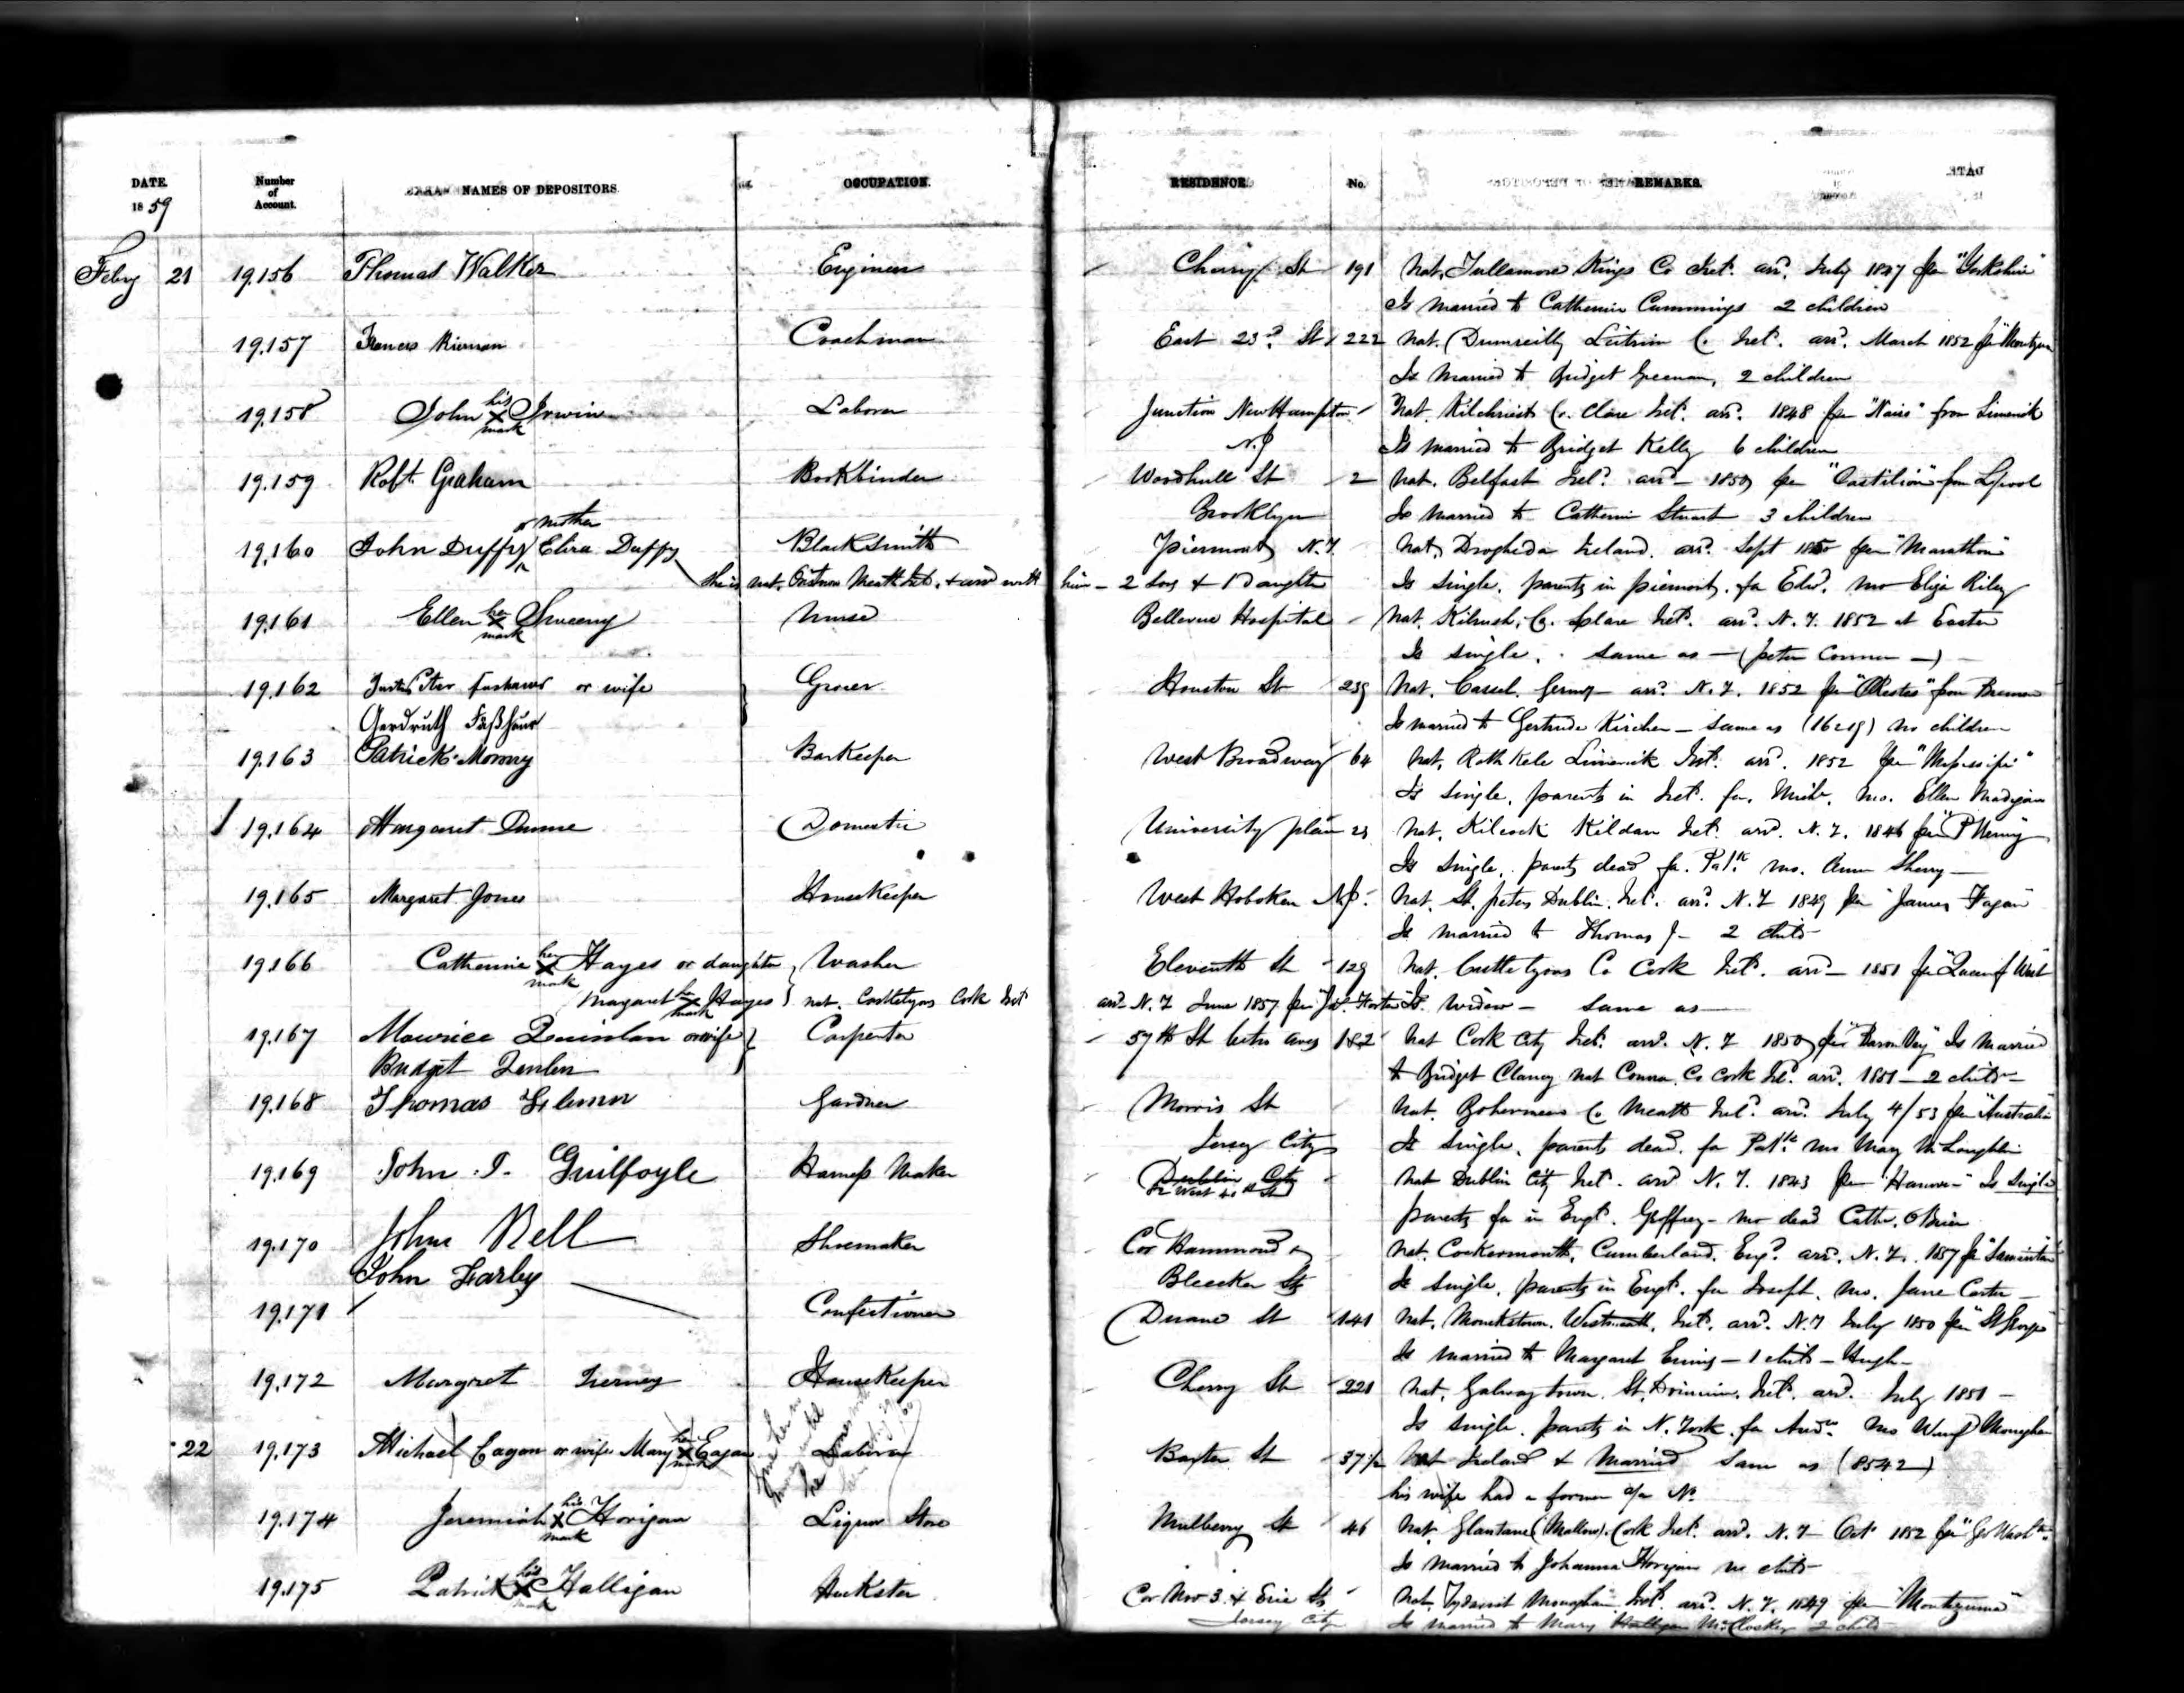 DATE. Number of Account. NAMES OF DEPOSITORS. OCCUPATION. RESIDENCE. No. REMARKS.
1859
Feby 21 19.156 Thomas Walker Engineer Cherry St 191 Nat. Tullamore Kings Co Irel. arr. July 1847 per "Yorkshire"
Is married to Catherine Cummings 2 children
19.157 Frances Kiernan Coachman East 23d St 222 nat. Drumreilly Leitrim Co. Irel. arr. March 1852 per
Is married to Bridget 2 children
19.158 John his X mark Irwin Laborer Junction New Hampton nat. Kilchrist Co. Clare Irel. arr. 1848 per from Limerick
N.J Is married to Bridget Kelly 6 children
19.159 Robt. Graham Bookbinder Woodhull St 2 nat. Belfast Irel. arr. 1850 per "Castilian" from Lpool
Brooklyn Is married to Catherine Stuart 3 children
or mother
19.160 John Duffy Eliza Duffy Blacksmith Piermont N.Y. Nat. Drogheda Ireland. arr. Sept 1850 per "Marathon"
She is nat. Meath Irel. & arrd with him - 2 Sons & 1 Daughter Is Single. parents in piermont. fa Edwd. mo Eliza Riley
19.161 Ellen her X mark Sweeny Nurse Bellevue Hospital Nat. Kilrush, Co. Clare Irel. arr. N.Y. 1852 at Easter
Is single. same as — (peter Connor —)
19.162 or wife Grocer Houston St 239 Nat. Cassel. Germy arr. N.Y. 1852 per "Orestes" from Bremen
Gerdruth Faßhauer Is married to Gertrude Kircher — same as no children
19.163 Patrick Morony Barkeeper West Broadway 64 Nat. Rathkeale Limerick Irel. arr. 1852 per "Missisipi"
Is single, parents in Irel. fa. Michl. mo. Ellen Madigan
19.164 Margaret Dunne Domestic University place 23 Nat. Kilcock Kildare Irel. arr. N.Y. 1846 per "P Henry"
Is Single, parents dead fa. Patk. mo. Ann Sherry —
19.165 Margaret Jones Housekeeper West Hoboken N.J. Nat. St. peters Dublin. Irel. arr. N.Y 1849 per "James Fagan"
Is married to Thomas J — 2 childn
19.166 Catherine her X mark Hayes or daughter Washer Eleventh St 129 Nat. Castlelyons Co Cork Irel. arr — 1851 per "Queen of West"
Margaret her X mark Hayes nat. Castlelyons Cork Irel arr. N.Y June 1857 per Is. widow — same as —
19.167 Maurice Quinlan or wife Carpenter 57th St betw aves 1 & 2 Nat Cork City Irel. arr. N.Y 1850 per Is Married
Bridget to Bridget Clancy nat Conna Co Cork Irel. arr. 1851 — 2 childn —
19.168 Thomas Gardner Morris St Nat. Bohermeen Co Meath Irel. arr. July 4/53 per "Australia"
Jersey City Is single, parents dead. fa Patk. mo Mary McLoughlin
19.169 John T. Guilfoyle Harness Maker Dublin City Nat Dublin City Irel. arrd N.Y. 1843 per "Hanover" Is Single
parents fa in Engd. Geoffrey — mo dead Cathe. OBrien
19.170 John Bell Shoemaker Cor Hammond & Nat. Cockermouth, Cumberland. Engd. arr. N.Y. 1857 per
Bleecker Sts Is Single. parents in Engd. fa Joseph. mo. Jane Carter —
John Farley
19.171 Confectioner Duane St 141 Nat. Monkstown. Westmeath, Irel. arr. N.Y July 1850 per "St George"
Is married to Margaret — 1 child — Hugh —
19.172 Margret Tierney Housekeeper Cherry St 221 Nat. Galway town. Irel. arr. July 1851 —
Is single. parents in N. York. fa Andw. mo Monaghan
22 19.173 Michael Eagan or wife Mary her X mark Eagan Laborer Baxter St 37½ Nat Ireland & Married Same as (8542)
his wife had a former a/c No
19.174 Jeremiah his X mark Horigan Liquor Store Mulberry St 46 Nat. Glantane (Mallow). Cork Irel. arr. N.Y — Oct 1852 per "Geo Washtn"
Is married to Johanna Horigan no childn
19.175 Patrick his X mark Halligan Huckster Cor No 3. & Erie Sts Nat. Tydavnit Monaghan Irel. arr. N.Y. 1849 per "Montezuma"
Jersey City Is married to Mary Halligan McCloskey 2 childn